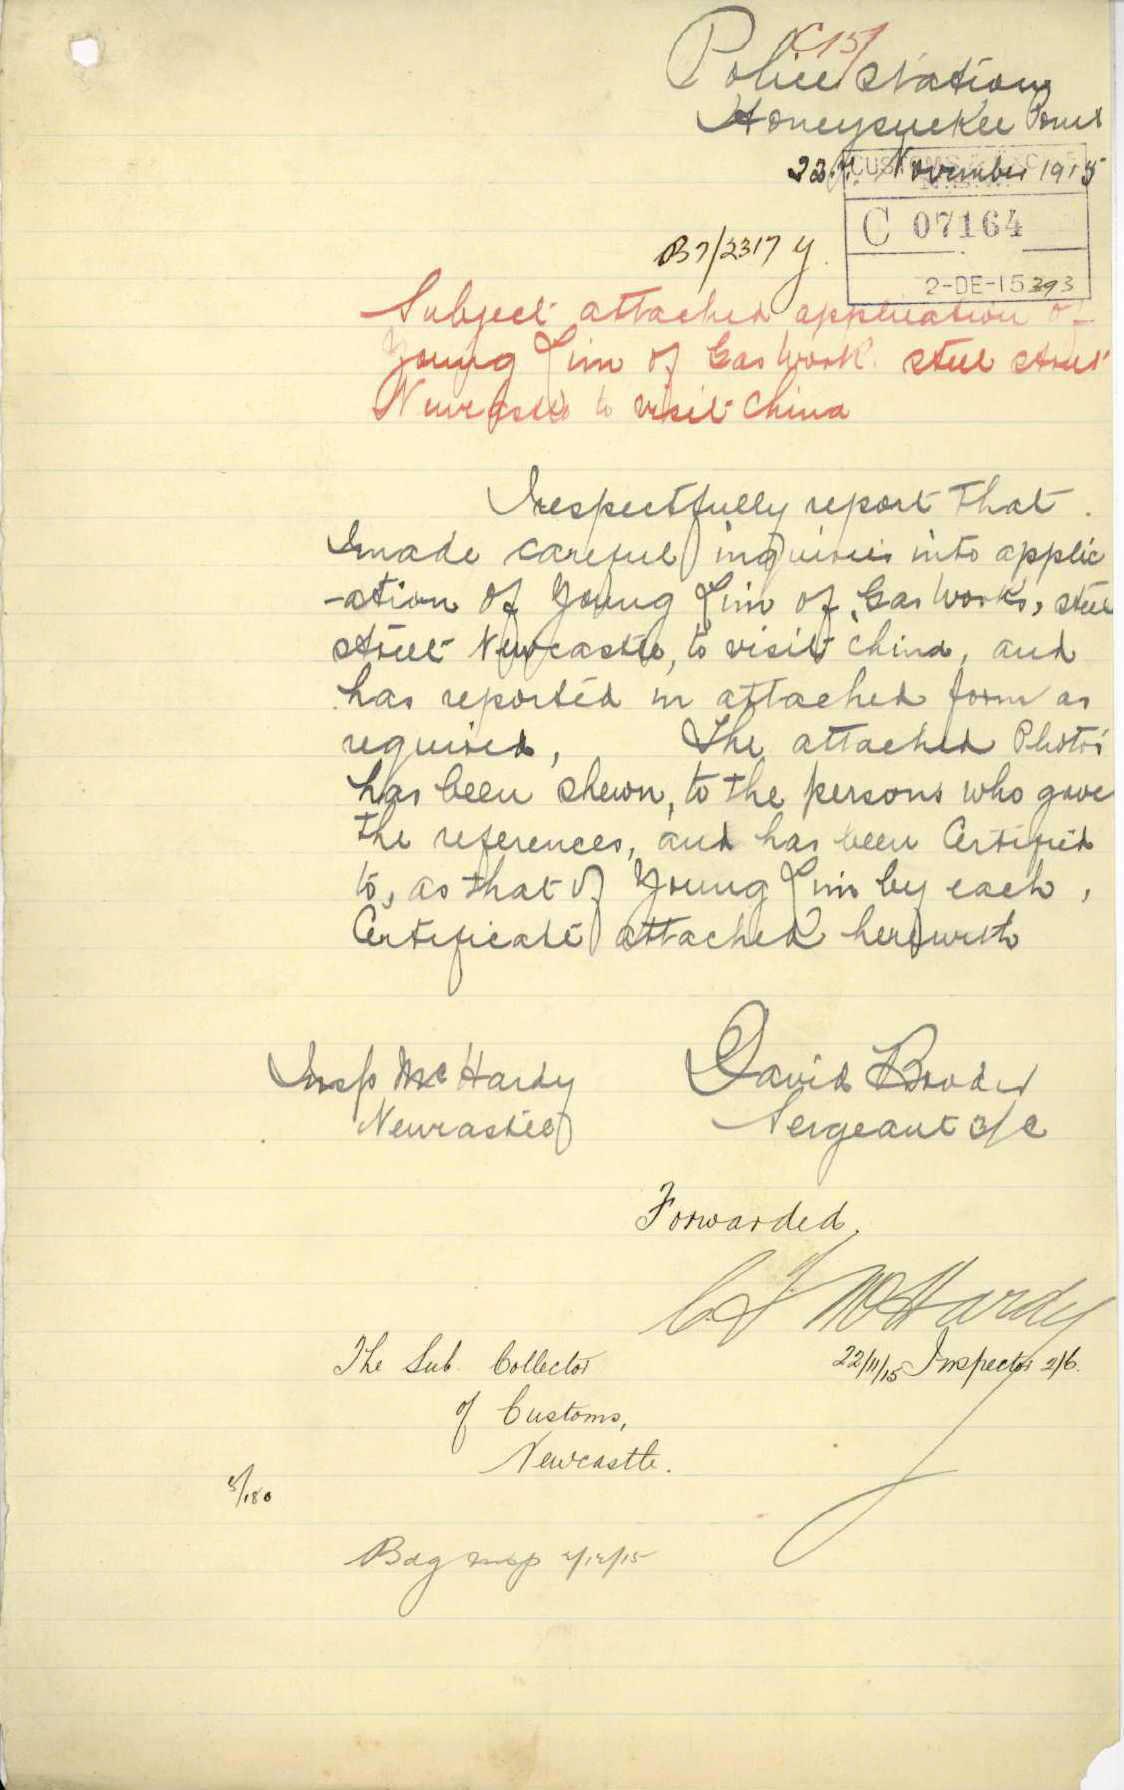 C15/
Police Station
Honeysuckle Point
22 November 1915
CUSTOMS
C 07164
2-DE-15 393
B7/2317 y.
Subject attached application of
Young Lim of Gas Work. Steel Street
Newcastle to visit China
I respectfully report that
I made careful inquiries into applic
-ation of Young Lim of Gas Works, Steel
Street Newcastle, to visit China, and
has reported in attached form as
required, The attached Photos
has been shewn, to the persons who gave
the references, and has been Certified
to, as that of Young Lim by each,
Certificate attached herewith
Insp McHardy
Newcastle
David Broder
Sergeant 3/C
Forwarded.
McHardy
22/11/15 Inspector
The Sub. Collector
of Customs,
Newcastle.
5/180
Bdg Insp 2/12/15